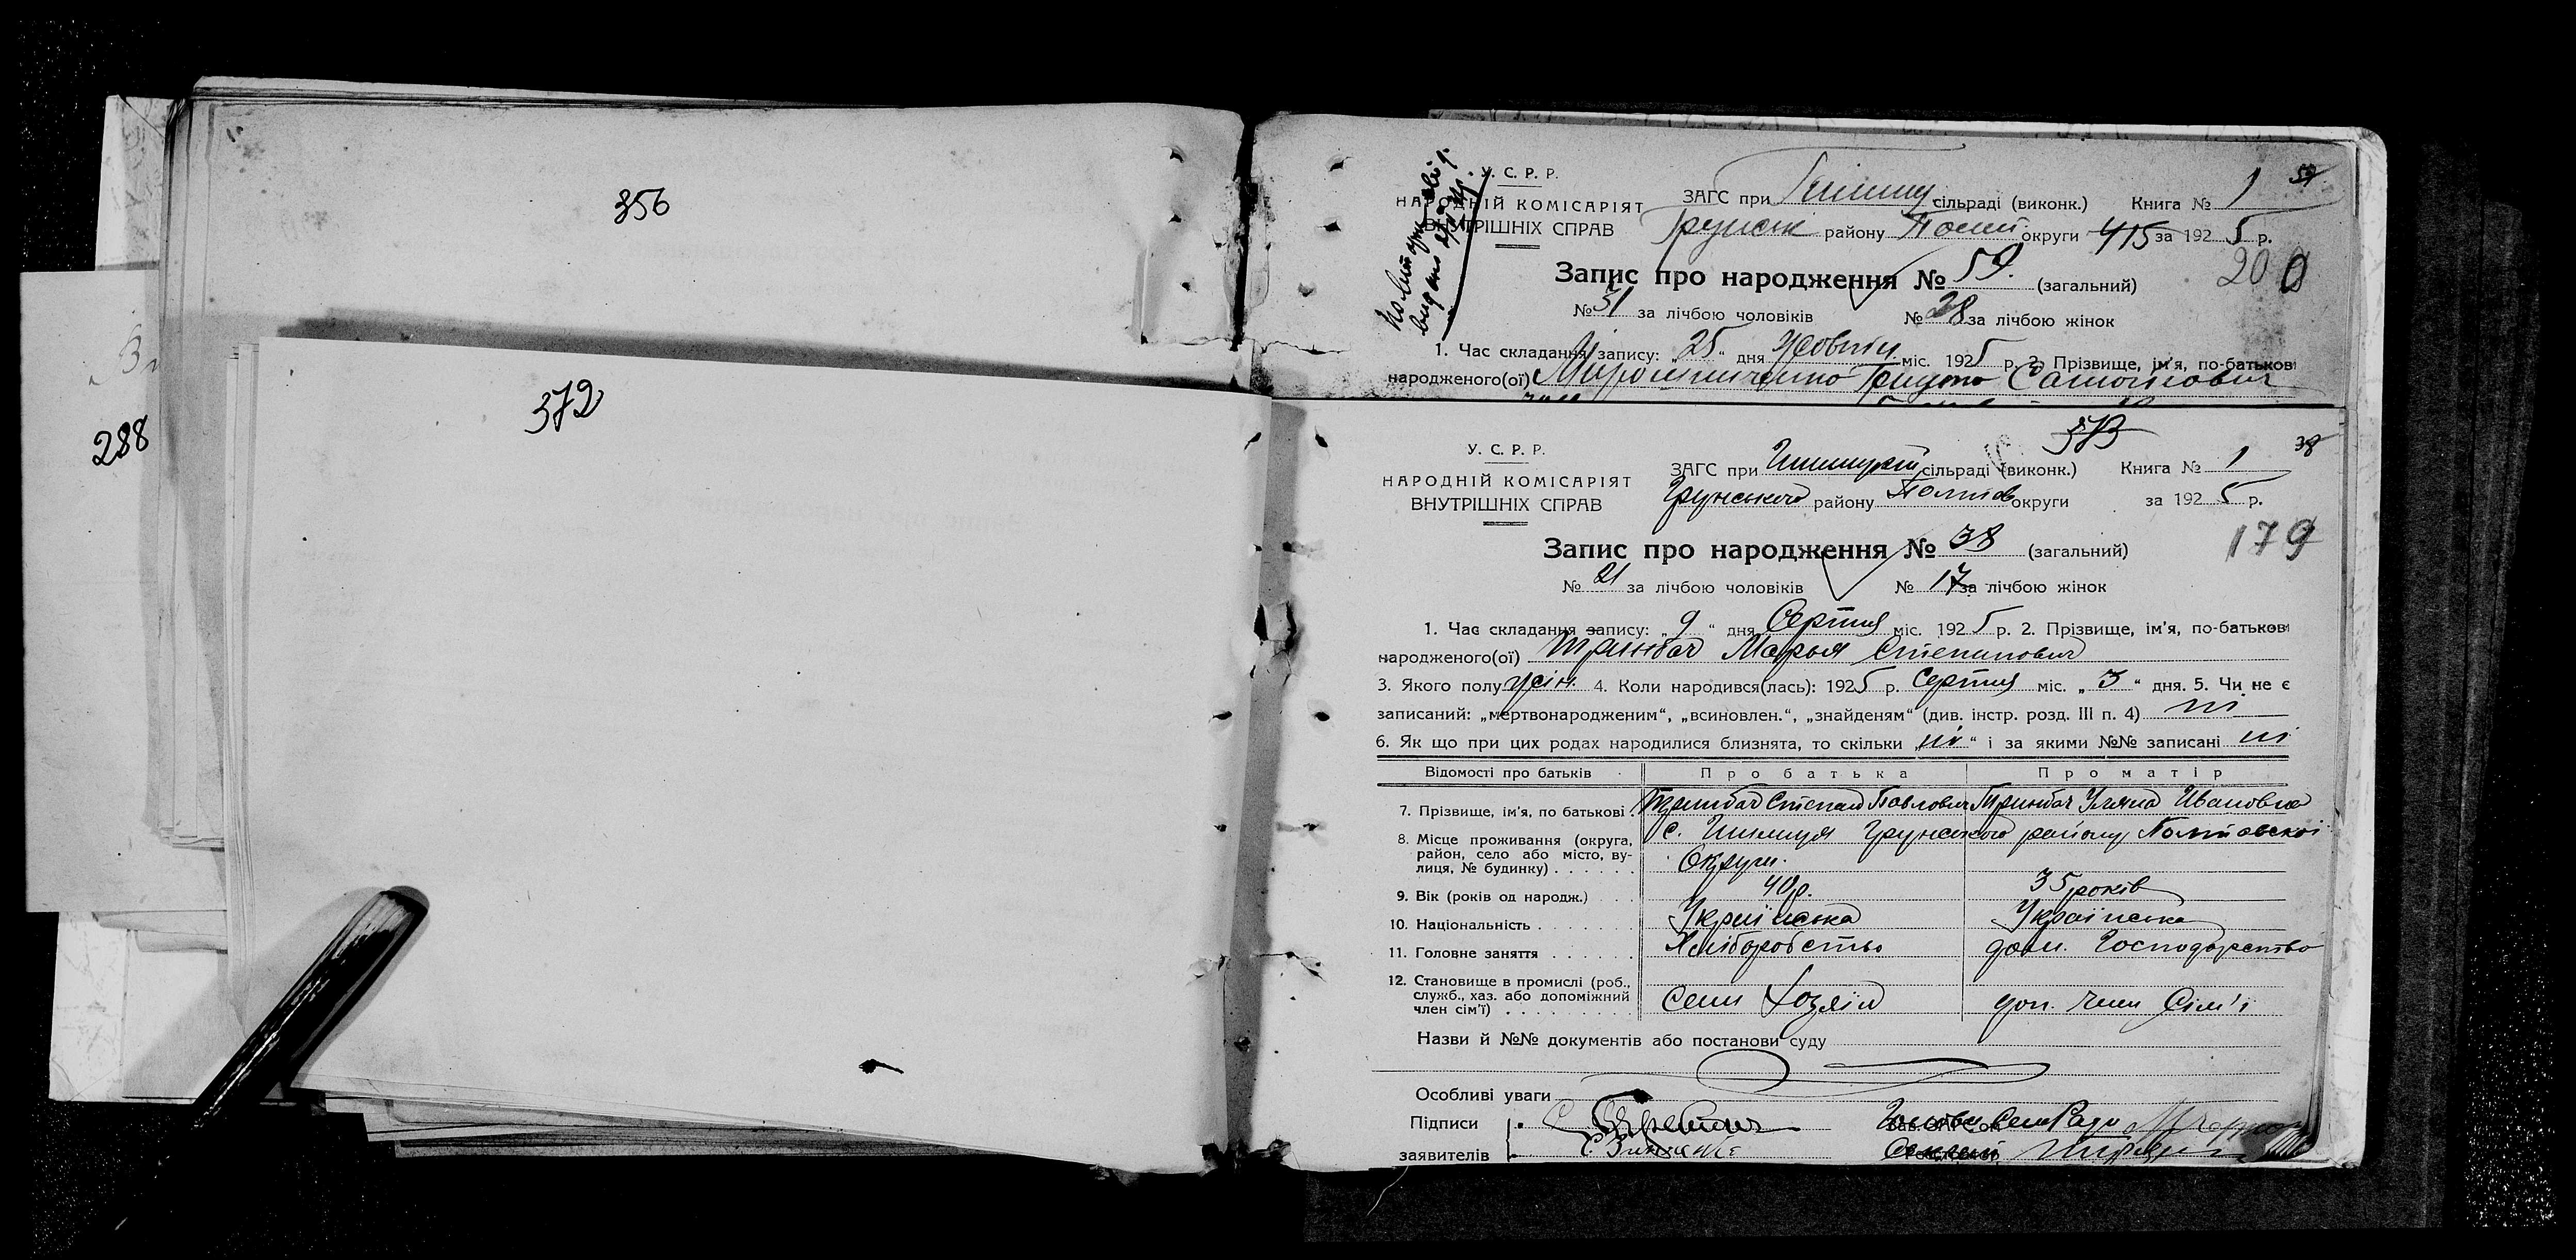 356
372
288
У. С. Р. Р.
НАРОДНІЙ КОМІСАРІЯТ
ВНУТРІШНІХ СПРАВ
ЗАГС при сільраді (виконк.) Книга № 1
Грунськ району Полт округи 415 за 1925 р.
200
Запис про народження № 59. (загальний)
№ 31 за лічбою чоловіків № 28 за лічбою жінок
1. Час складання запису: „25“ дня Жовтн міс. 1925 р. 2. Прізвище, ім'я, по-батькові
народженого(ої) Мирошниченко Грицько
373
38
У. С. Р. Р.
НАРОДНІЙ КОМІСАРІЯТ
ВНУТРІШНІХ СПРАВ
ЗАГС при сільраді (виконк.) Книга № 1
Грунського району Полтав округи за 1925 р.
179
Запис про народження № 38 (загальний)
№ 21 за лічбою чоловіків № 17 за лічбою жінок
1. Час складання запису: „9“ дня Серпня міс. 1925 р. 2. Прізвище, ім'я, по-батькові
народженого(ої) Тринбач Марья Степанович
3. Якого полу жін. 4. Коли народився(лась): 1925 р. Серпня міс. „3“ дня. 5. Чи не є
записаний: „мертвонародженим“, „всиновлен.“, „знайденям“ (див. інстр. розд. III п. 4) ні
6. Як що при цих родах народилися близнята, то скільки „ні“ і за якими №№ записані ні
Відомості про батьків Про батька Про матір
7. Прізвище, ім'я, по батькові. Тринбач Степан Павлович Тринбач Уляна Ивановна
8. Місце проживання (округа, район, село або місто, вулиця, № будинку) с. Грунського району Полтавскоі
Округи.
9. Вік (років од народж.) 40 р. 35 років
10. Національність Українська Українська
11. Головне заняття Хліборобство дом. Господарство
12. Становище в промислі (роб., служб., хаз. або допоміжний член сім'ї) Хозяін доп. член Сім'ї
Назви й №№ документів або постанови суду
Особливі уваги
Підписи
заявителів